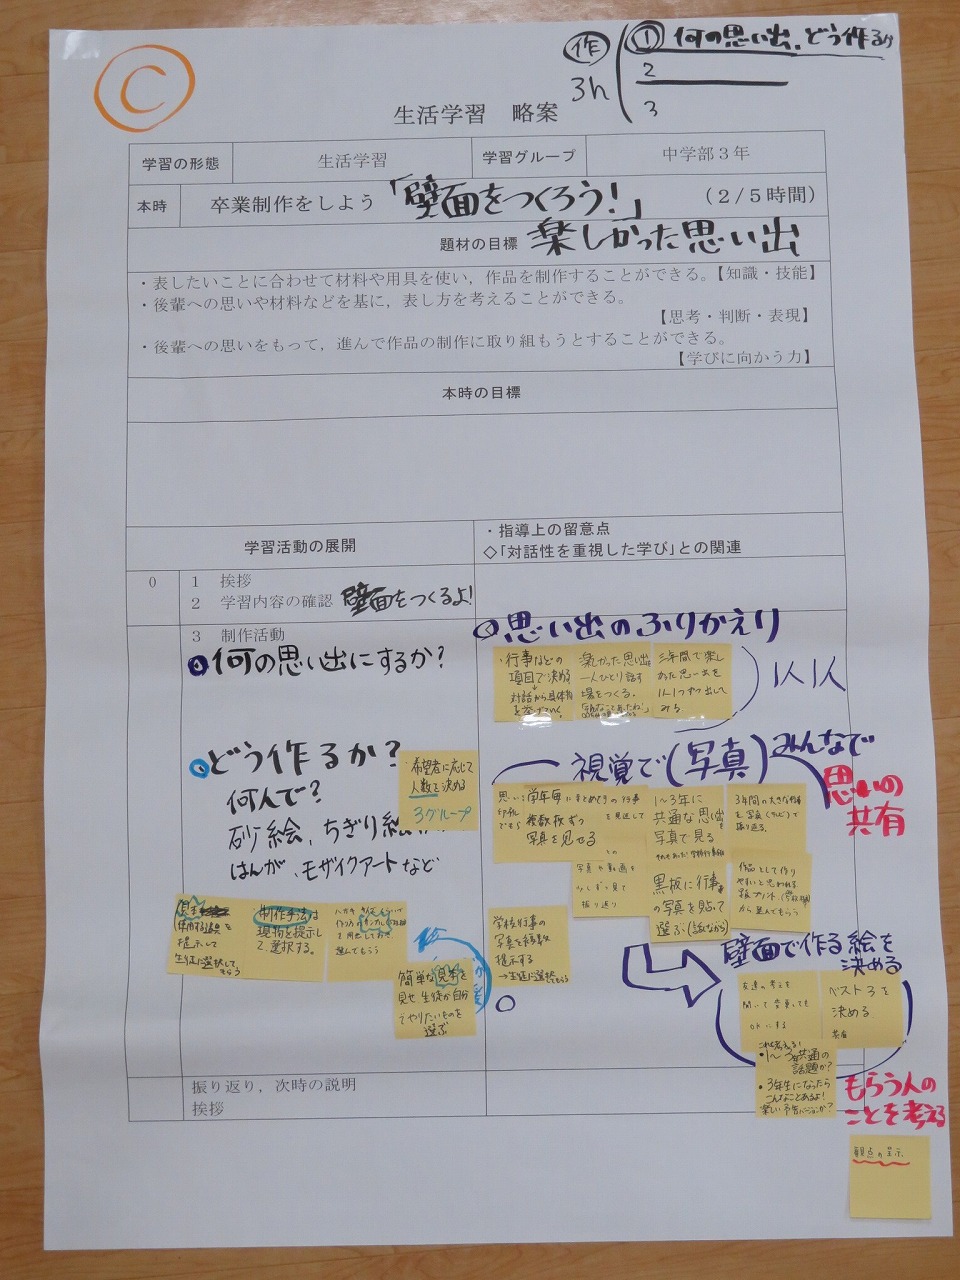 C
作 3h
① 何の思い出、どう作るか
2
3
生活学習 略案
学習の形態 生活学習 学習グループ 中学部3年
本時 卒業制作をしよう 「壁面をつくろう!」 (2/5時間)
題材の目標 楽しかった思い出
・表したいことに合わせて材料や用具を使い,作品を制作することができる。【知識・技能】
・後輩への思いや材料などを基に,表し方を考えることができる。
【思考・判断・表現】
・後輩への思いをもって,進んで作品の制作に取り組もうとすることができる。
【学びに向かう力】
本時の目標
学習活動の展開
・指導上の留意点
◇「対話性を重視した学び」との関連
0
1 挨拶
2 学習内容の確認 壁面をつくるよ!
3 制作活動
何の思い出にするか?
どう作るか?
何んで?
砂絵、ちぎり絵
はんが、モザイクアートなど
・希望者に応じて
人数を決める
3グループ
見本
使用する道具を
提示して
生徒に選択して
もらう
・制作手法は
現物を提示し
て選択する。
選んでもらう
簡単な見本を
見せ生徒が自分
でやりたいものを
選ぶ
思い出のふりかえり
・行事などの
項目で決める
対話から具体物
を挙げていく。
楽しかった思い出を
一人ひとり話す
場をつくる。
三年間で楽し
かった思い出を
1人1つずつ出して
みる
1人1人
視覚で(写真)
みんなで
思いの
共有
学年毎に
複数枚ずつ
写真を見せる
1〜3年に
共通な思い出を
写真で見る
黒板に行事
の写真を貼って
選ぶ(話しながら)
3年間の大きな行事
を写真(などで)で
振り返る。
写真や動画を
少しずつ見て
振り返り
作品として作り
やすいと思われる
から選んでもらう
学校行事の
写真を複数
提示する
→生徒に選択してもらう
壁面で作る絵を
決める
友達の考えを
聞いて変更しても
OKにする
ベスト3を
決める
共有
これを考える!
・1〜3年共通の
話題か?
・3年生になったら
こんなことあるよ!
楽しい予告バージョンか?
もらう人の
ことを考える
観点の呈示
振り返り,次時の説明
挨拶